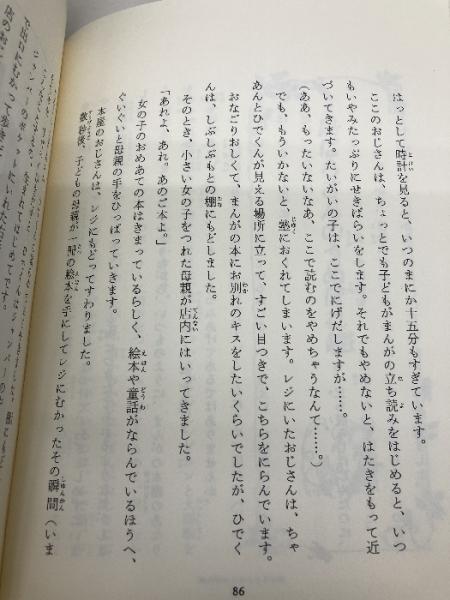 はっとして時計を見ると、いつのまにか十五分もすぎています。
ここのおじさんは、ちょっとでも子どもがまんがの立ち読みをはじめると、いつ
もいやみたっぷりにせきばらいをします。それでもやめないと、はたきをもって近
づいてきます。たいがいの子は、ここでにげだしますが……。
(ああ、もったいないなあ、ここで読むのをやめちゃうなんて……。)
でも、もういかないと、塾におくれてしまいます。レジにいたおじさんは、ちゃ
あんとひでくんが見える場所に立って、すごい目つきで、こちらをにらんでいます。
おなごりおしくて、まんがの本にお別れのキスをしたいくらいでしたが、ひでく
んは、しぶしぶもとの棚にもどしました。
そのとき、小さい女の子をつれた母親が店内にはいってきました。
「あれよ、あれ。あのご本よ。」
女の子のおめあての本はきまっているらしく、絵本や童話がならんでいるほうへ、
ぐいぐいと母親の手をひっぱっていきます。
本屋のおじさんは、レジにもどってすわりました。
数秒後、子どもの母親が一冊の絵本を手にしてレジにむかったその瞬間(いま
86